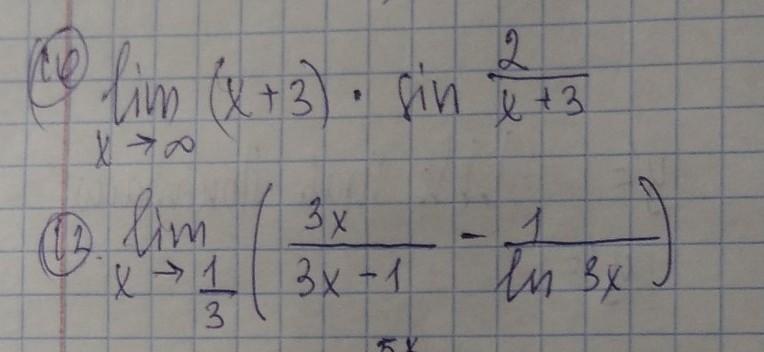 lim x→∞ (x+3) · sin 2/(x+3)
lim x→1/3 (3x/(3x-1) - 1/(ln 3x))
5x